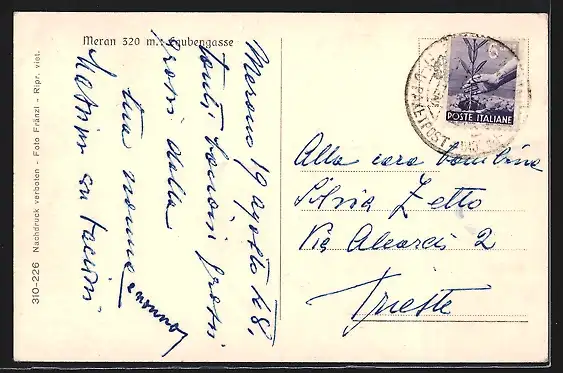 Meran 320 m.: Laubengasse
Merano 19 agosto 48.
tanti bacioni grossi
grossi dalla
tua nonna e nonno
bacioni
Alla cara bambina
Silvia Zetto
Via 2
Trieste
6
POSTE ITALIANE
310-226 Nachdruck verboten - Foto Fränzl - Ripr. viet.